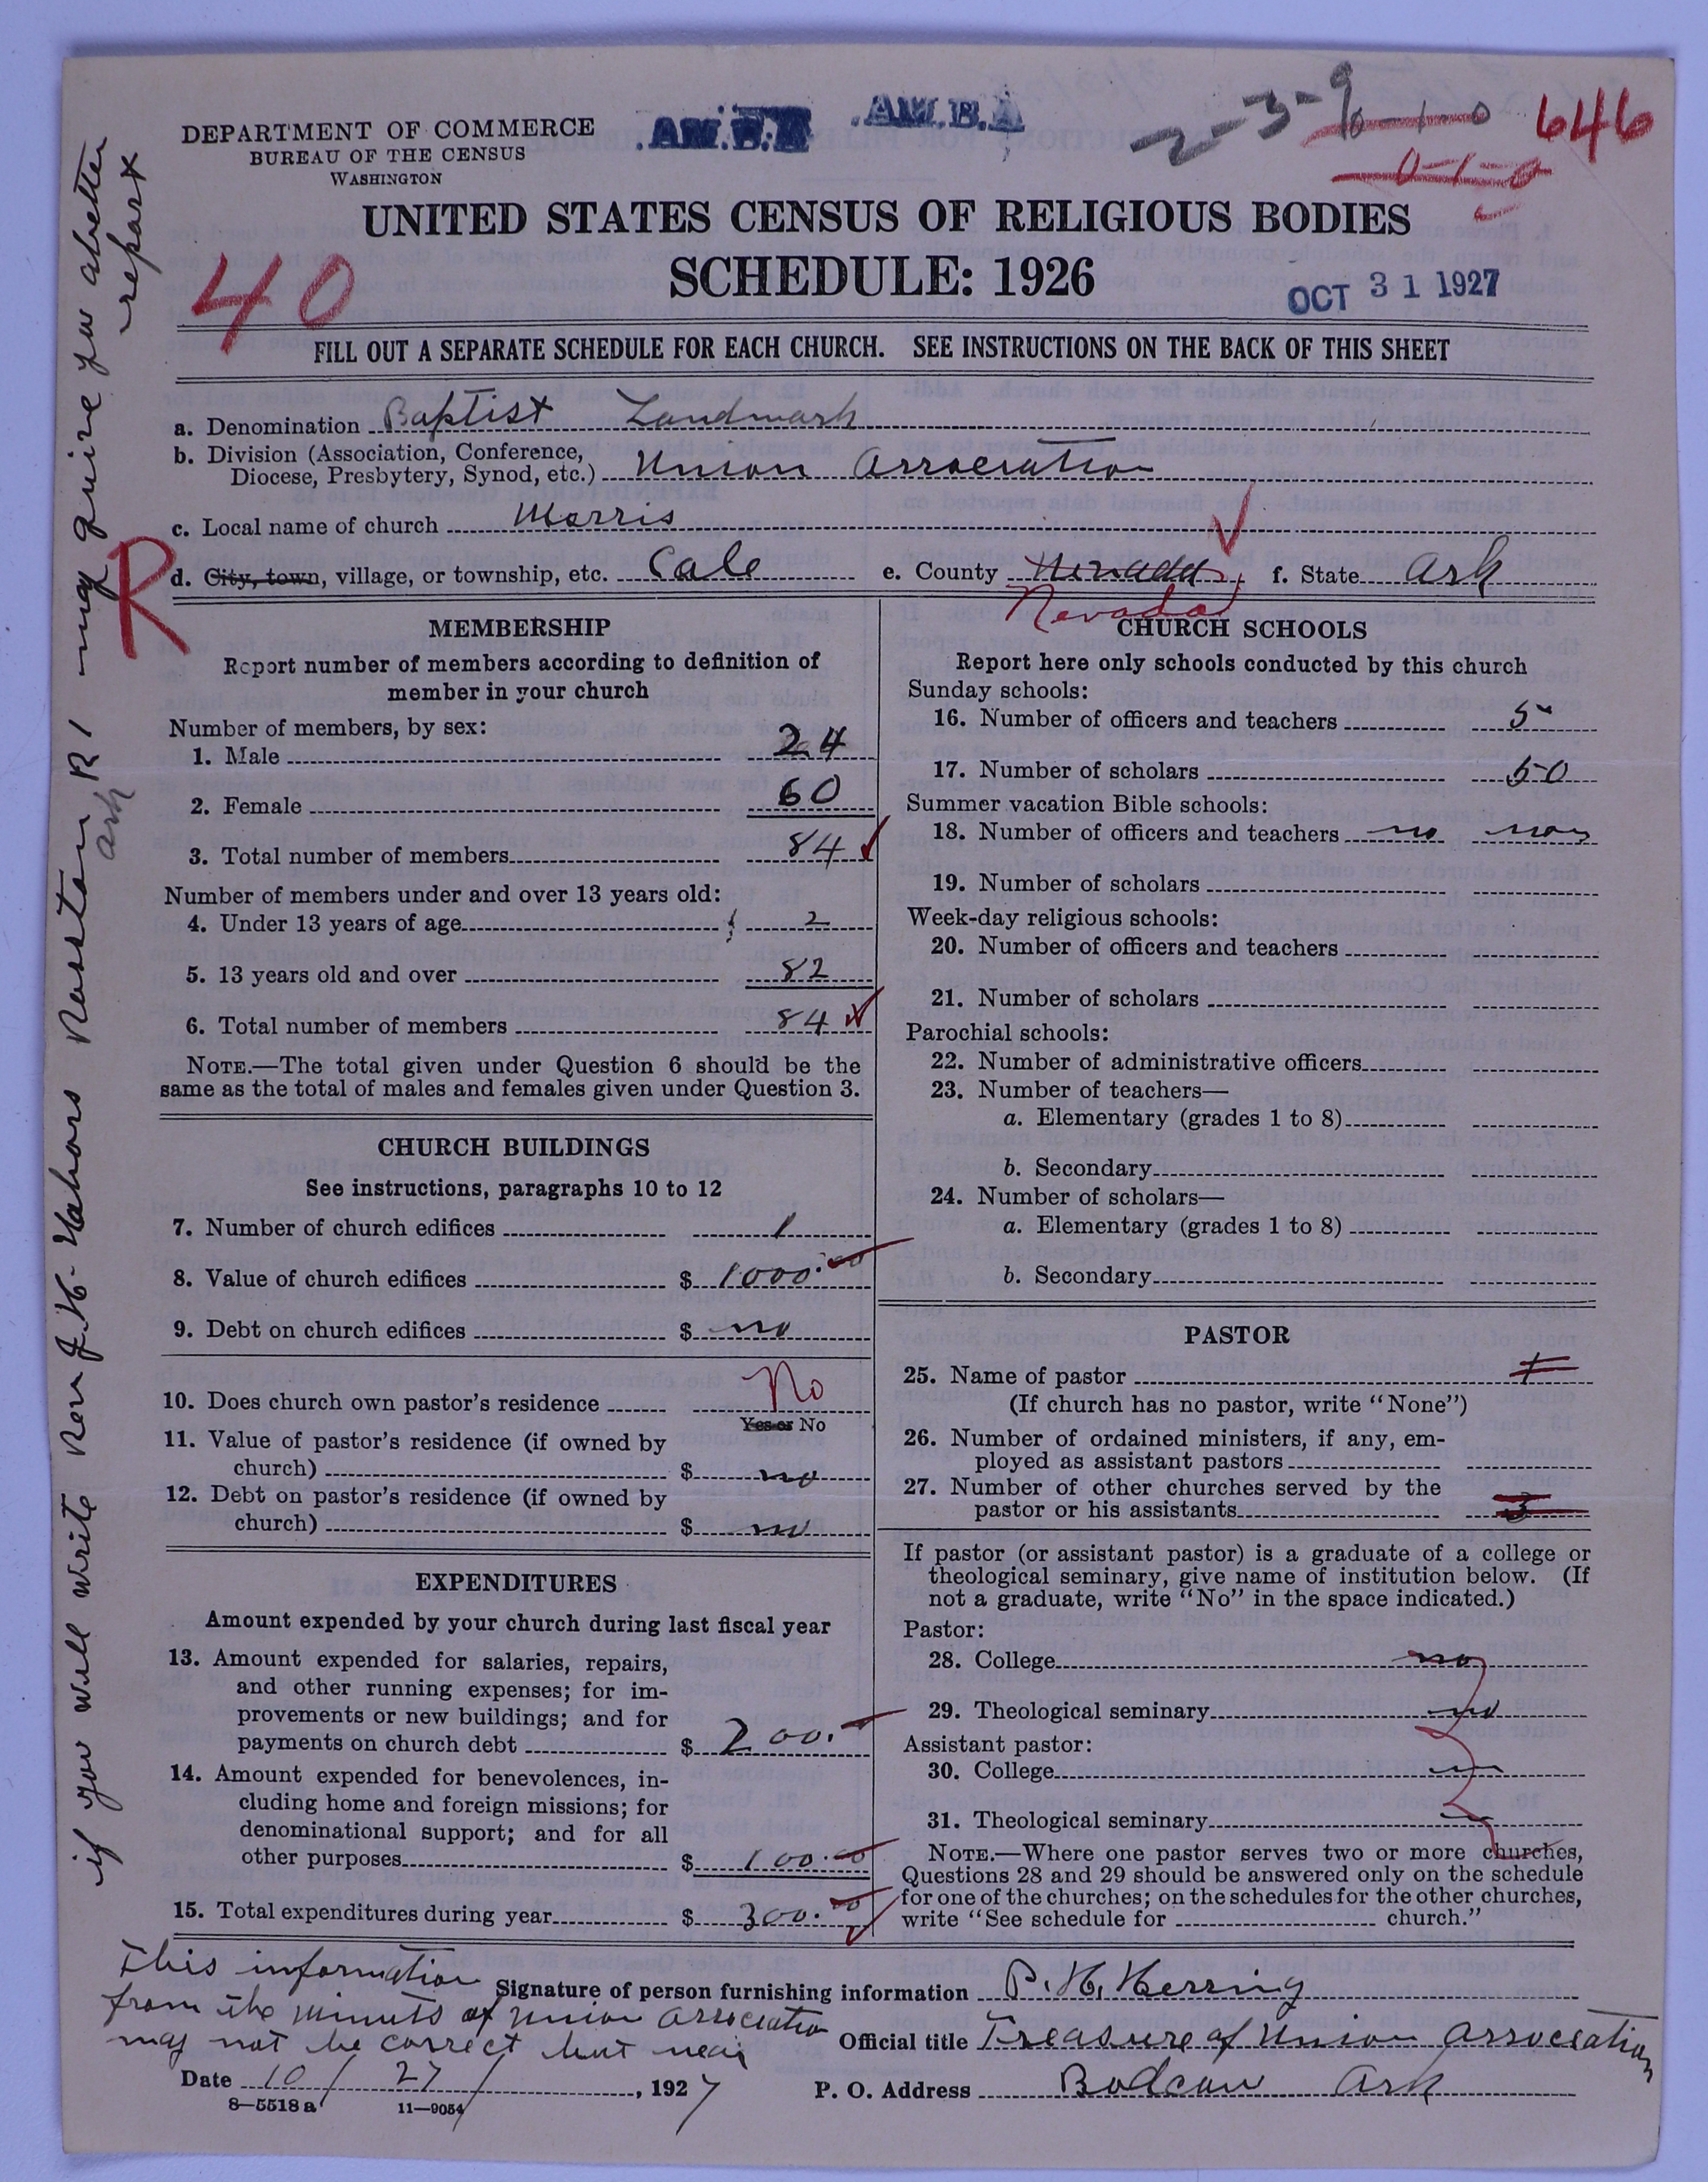 DEPARTMENT OF COMMERCE
BUREAU OF THE CENSUS
WASHINGTON
AM. B. A
AM. B. A
2-3-9
6-1-0
0-1-0
646
UNITED STATES CENSUS OF RELIGIOUS BODIES
SCHEDULE: 1926
40
OCT 31 1927
FILL OUT A SEPARATE SCHEDULE FOR EACH CHURCH. SEE INSTRUCTIONS ON THE BACK OF THIS SHEET
a. Denomination Baptist Landmark
b. Division (Association, Conference,
Diocese, Presbytery, Synod, etc.) Union Association
c. Local name of church Morris
R
d. City, town, village, or township, etc. Cale e. County Nevada f. State Ark
Nevada
MEMBERSHIP
Report number of members according to definition of
member in your church
Number of members, by sex:
1. Male 24
2. Female 60
3. Total number of members 84
Number of members under and over 13 years old:
4. Under 13 years of age 2
5. 13 years old and over 82
6. Total number of members 84
NOTE.—The total given under Question 6 should be the
same as the total of males and females given under Question 3.
CHURCH BUILDINGS
See instructions, paragraphs 10 to 12
7. Number of church edifices 1
8. Value of church edifices $ 1000.00
9. Debt on church edifices $ no
10. Does church own pastor's residence No
Yes or No
11. Value of pastor's residence (if owned by
church) $ no
12. Debt on pastor's residence (if owned by
church) $ no
EXPENDITURES
Amount expended by your church during last fiscal year
13. Amount expended for salaries, repairs,
and other running expenses; for im-
provements or new buildings; and for
payments on church debt $ 200.
14. Amount expended for benevolences, in-
cluding home and foreign missions; for
denominational support; and for all
other purposes $ 100.00
15. Total expenditures during year $ 300.00
CHURCH SCHOOLS
Report here only schools conducted by this church
Sunday schools:
16. Number of officers and teachers 5
17. Number of scholars 50
Summer vacation Bible schools:
18. Number of officers and teachers no
19. Number of scholars
Week-day religious schools:
20. Number of officers and teachers
21. Number of scholars
Parochial schools:
22. Number of administrative officers
23. Number of teachers—
a. Elementary (grades 1 to 8)
b. Secondary
24. Number of scholars—
a. Elementary (grades 1 to 8)
b. Secondary
PASTOR
25. Name of pastor
(If church has no pastor, write "None")
26. Number of ordained ministers, if any, em-
ployed as assistant pastors
27. Number of other churches served by the
pastor or his assistants 3
If pastor (or assistant pastor) is a graduate of a college or
theological seminary, give name of institution below. (If
not a graduate, write "No" in the space indicated.)
Pastor:
28. College no
29. Theological seminary no
Assistant pastor:
30. College
31. Theological seminary
NOTE.—Where one pastor serves two or more churches,
Questions 28 and 29 should be answered only on the schedule
for one of the churches; on the schedules for the other churches,
write "See schedule for church."
This information
from the minuts of Union Association
may not be correct but near
Signature of person furnishing information P. H. Herring
Official title Treasure of Union Association
Date 10/27/, 1927
P. O. Address Bodcaw Ark
8-5518a 11-9054
if you will write Rev J. H. Nabors Rosston R 1 may quire you abetter
report
Ark